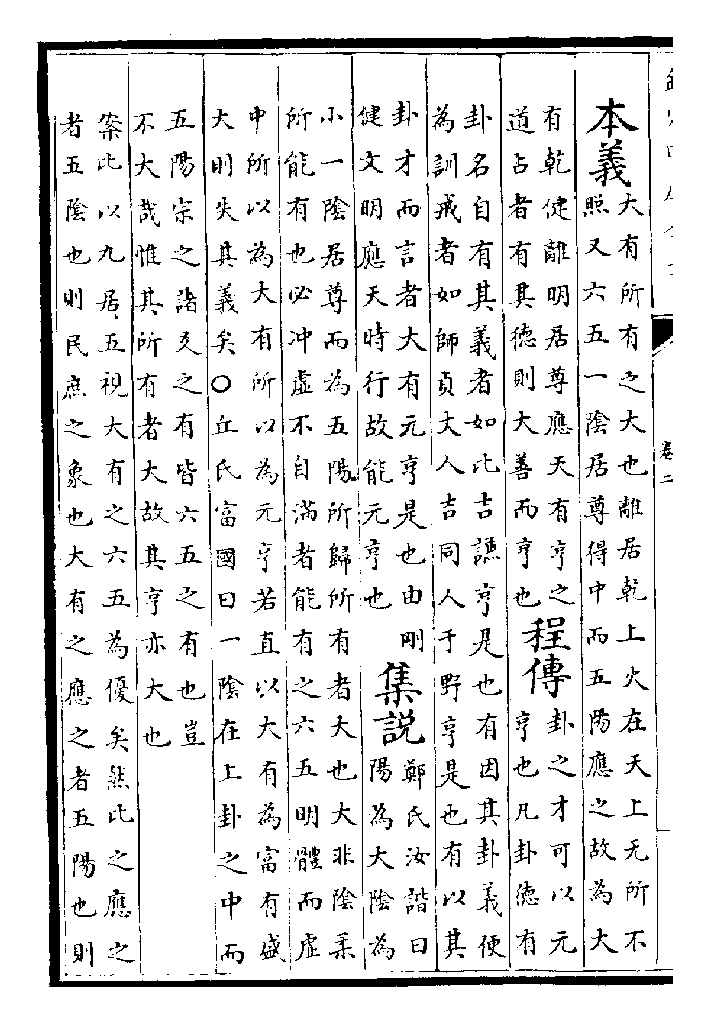 卷二
本義
大有所有之大也離居乾上火在天上无所不
照又六五一陰居尊得中而五陽應之故為大
有乾健離明居尊應天有亨之
道占者有其德則大善而亨也
程傳
卦之才可以元
亨也凡卦德有
卦名自有其義者如比吉謙亨是也有因其卦義便
為訓戒者如師貞丈人吉同人于野亨是也有以其
卦才而言者大有元亨是也由剛
健文明應天時行故能元亨也
集說
鄭氏汝諧曰
陽為大陰為
小一陰居尊而為五陽所歸所有者大也大非陰柔
所能有也必冲虛不自滿者能有之六五明體而虛
中所以為大有所以為元亨若直以大有為富有盛
大則失其義矣○丘氏富國曰一陰在上卦之中而
五陽宗之諸爻之有皆六五之有也豈
不大哉惟其所有者大故其亨亦大也
案比以九居五視大有之六五為優矣然比之應之
者五陰也則民庶之象也大有之應之者五陽也則